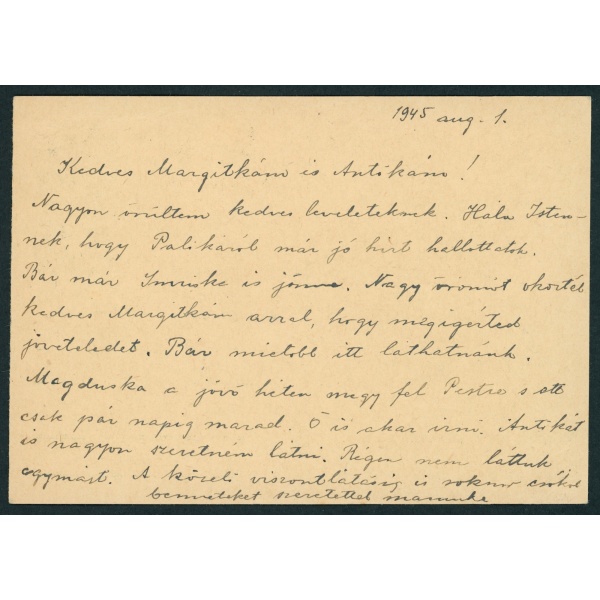 1945 aug. 1.
Kedves Margitkám és Antikám!
Nagyon örültem kedves leveleteknek. Hála Isten-
nek, hogy Palikáról már jó hírt hallottatok.
Bár már Imriske is jönne. Nagy örömöt okoztál
kedves Margitkám azzal, hogy megigérted
jöveteledet. Bár mielobb itt láthatnánk.
Magduska a jövő héten megy fel Pestre s ott
csak pár napig marad. Ő is akar irni. Antikát
is nagyon szeretném látni. Régen nem láttuk
egymást. A közeli viszontlátásig is sokszor csókol
benneteket szeretettel